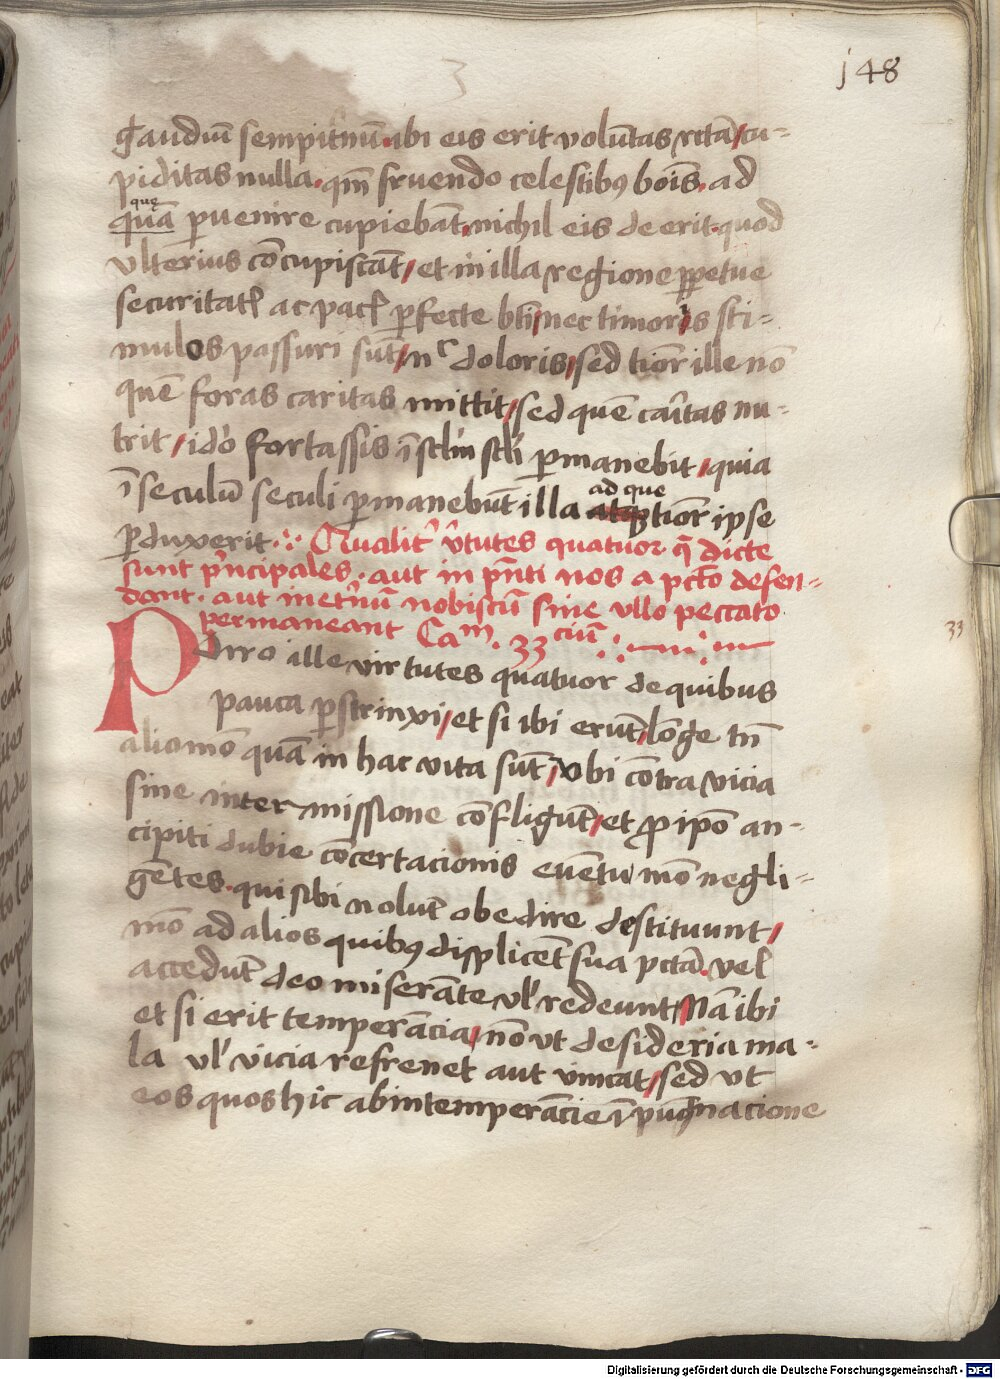 3
148
gaudiū sempit̄nū. ibi eis erit volūtas rc̄ta/ cu-
piditas nulla. qm̄ fruendo celestibꝫ bōis. ad
quę
quā ꝑuenire cupiebāt. nichil eis deerit. quod
vlterius cōcupiscāt/ et in illa regione ꝑpetue
securitatꝭ ac pacꝭ ꝑfecte bt̄i/ nec timoris sti-
mulos passuri sūt/ nᶜ doloris/ sed tior̄ ille nō
quē foras caritas mittit/ sed quē car̄tas nu-
trit/ idō fortassis ī sc̄lm sc̄li ꝑmanebit/ quia
ī seculū seculi ꝑmanebūt illa
ad que
tior̄ ipse
ꝑduxerit. Qualit̄ v̄tutes quatuor q̄ dicte
sunt pⁱncipales. aut in pn̄ti nos a pctō defen-
dant. aut inet̄nū nobiscū sine vllo peccato
permaneant Caᵐ. 33ciū
33
Porro ille virtutes quatuor de quibus
pauca ꝑstrinxi/ et si ibi erūt/ lōge tn̄
alio mō quā in hac vita sūt/ vbi cōtra vicia
sine intermissione cōfligūt/ et ꝓ ipō an-
cipiti dubie cōcertacionis euētu mō negli-
gētes. qui sibi nolūt obedire destituunt/
mō ad alios quibꝫ displicēt sua pctā. vel
accedūt deo miserāte vl̄ redeunt/ Nā ibi
et si erit temperācia/ nō vt desideria ma-
la vl̄ vicia refrenet aut vincat/ sed vt
eos quos hic ab intemperācie īpugnacione
Digitalisierung gefördert durch die Deutsche Forschungsgemeinschaft - DFG